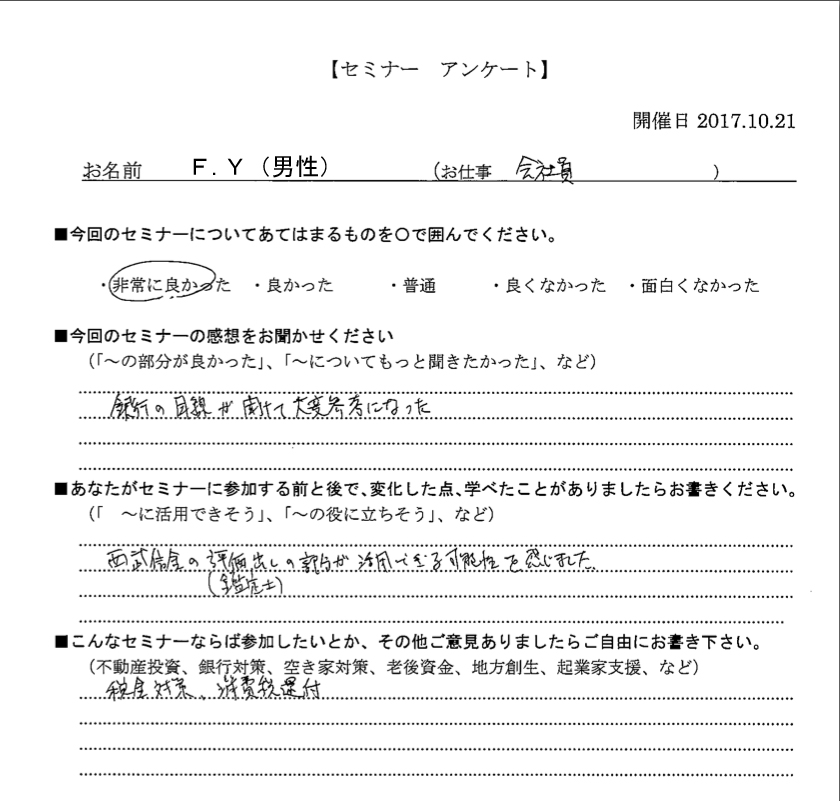 【セミナー　アンケート】
開催日 2017.10.21
お名前　F.Y（男性）　（お仕事　会社員　）
■今回のセミナーについてあてはまるものを〇で囲んでください。
・非常に良かった　・良かった　・普通　・良くなかった　・面白くなかった
■今回のセミナーの感想をお聞かせください
（「～の部分が良かった」、「～についてもっと聞きたかった」、など）
銀行の目線が聞けて大変参考になった
■あなたがセミナーに参加する前と後で、変化した点、学べたことがありましたらお書きください。
（「　～に活用できそう」、「～の役に立ちそう」、など）
西武信金の評価出しの部分が活用できる可能性を感じました。
（鑑定士）
■こんなセミナーならば参加したいとか、その他ご意見ありましたらご自由にお書き下さい。
（不動産投資、銀行対策、空き家対策、老後資金、地方創生、起業家支援、など）
税金対策、消費税還付